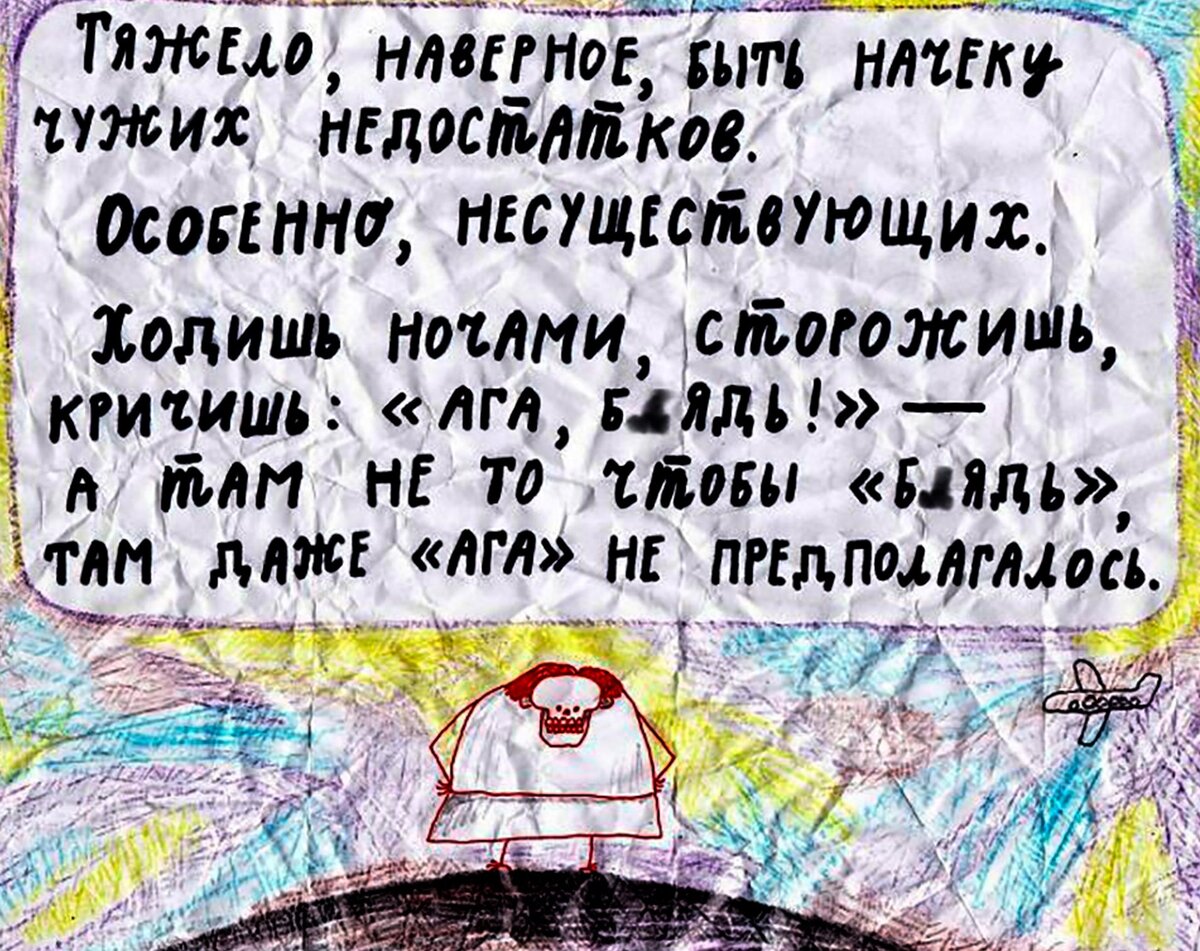 Тяжело, наверное, быть начеку
чужих недостатков.
Особенно, несуществующих.
Ходишь ночами, сторожишь,
кричишь: «Ага, б лядь!» —
а там не то чтобы «б лядь»,
там даже «ага» не предполагалось.